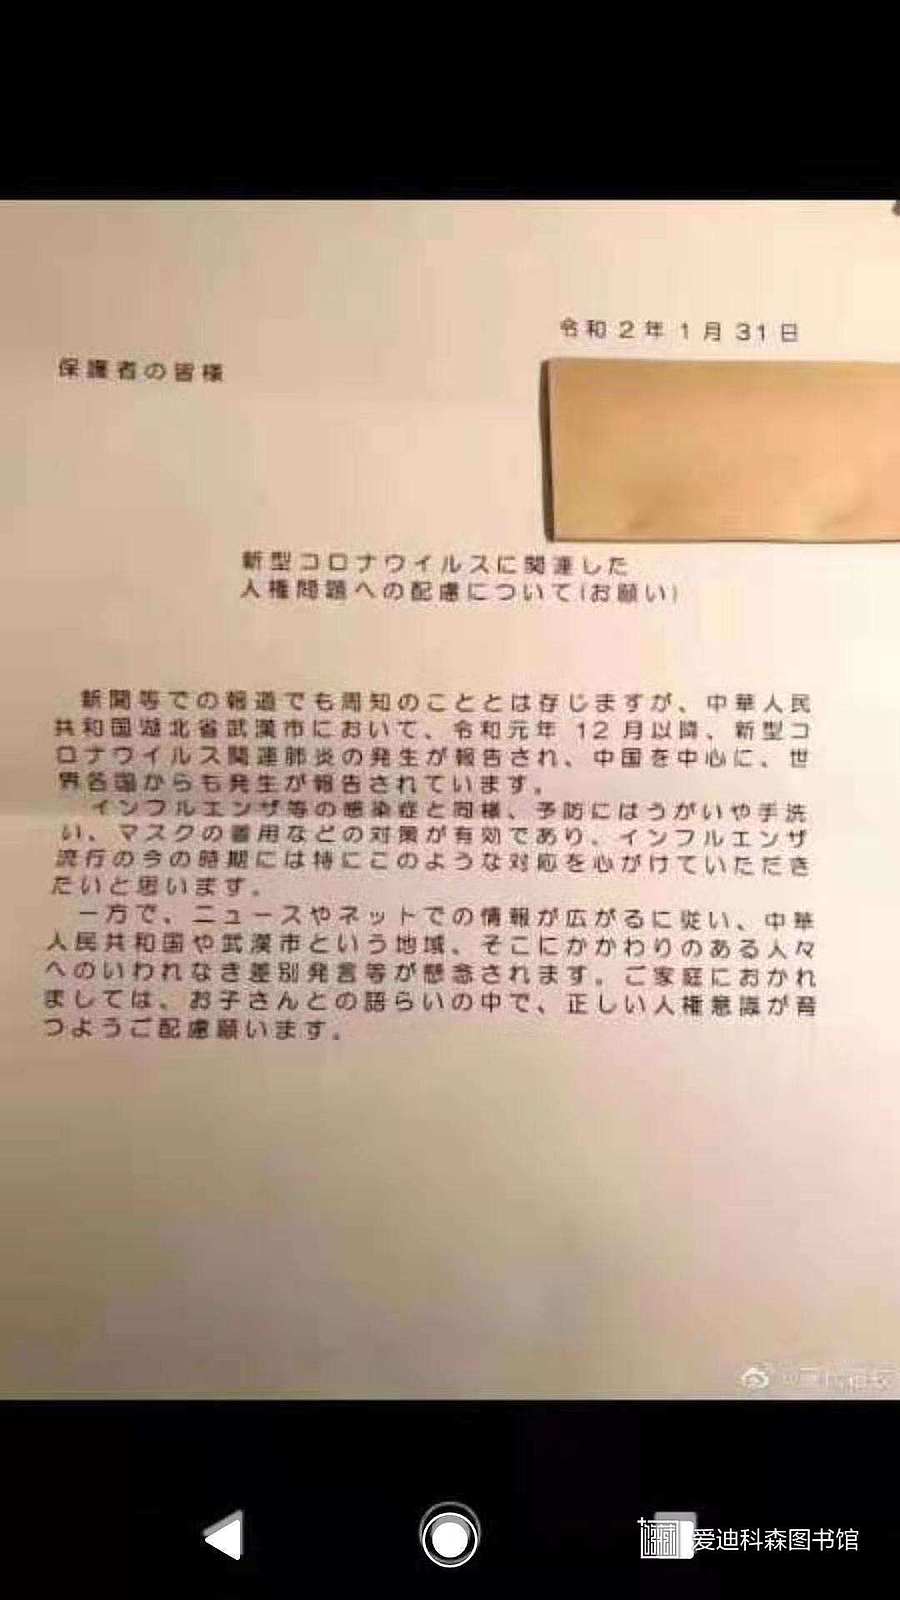 令和2年1月31日
保護者の皆様
新型コロナウイルスに関連した
人権問題への配慮について(お願い)
新聞等での報道でも周知のこととは存じますが、中華人民
共和国湖北省武漢市において、令和元年 12 月以降、新型コ
ロナウイルス関連肺炎の発生が報告され、中国を中心に、世
界各国からも発生が報告されています。
インフルエンザ等の感染症と同様、予防にはうがいや手洗
い、マスクの着用などの対策が有効であり、インフルエンザ
流行の今の時期には特にこのような対応を心がけていただき
たいと思います。
一方で、ニュースやネットでの情報が広がるに従い、中華
人民共和国や武漢市という地域、そこにかかわりのある人々
へのいわれなき差別発言等が懸念されます。ご家庭におかれ
ましては、お子さんとの語らいの中で、正しい人権意識が育
つようご配慮願います。
爱迪科森图书馆